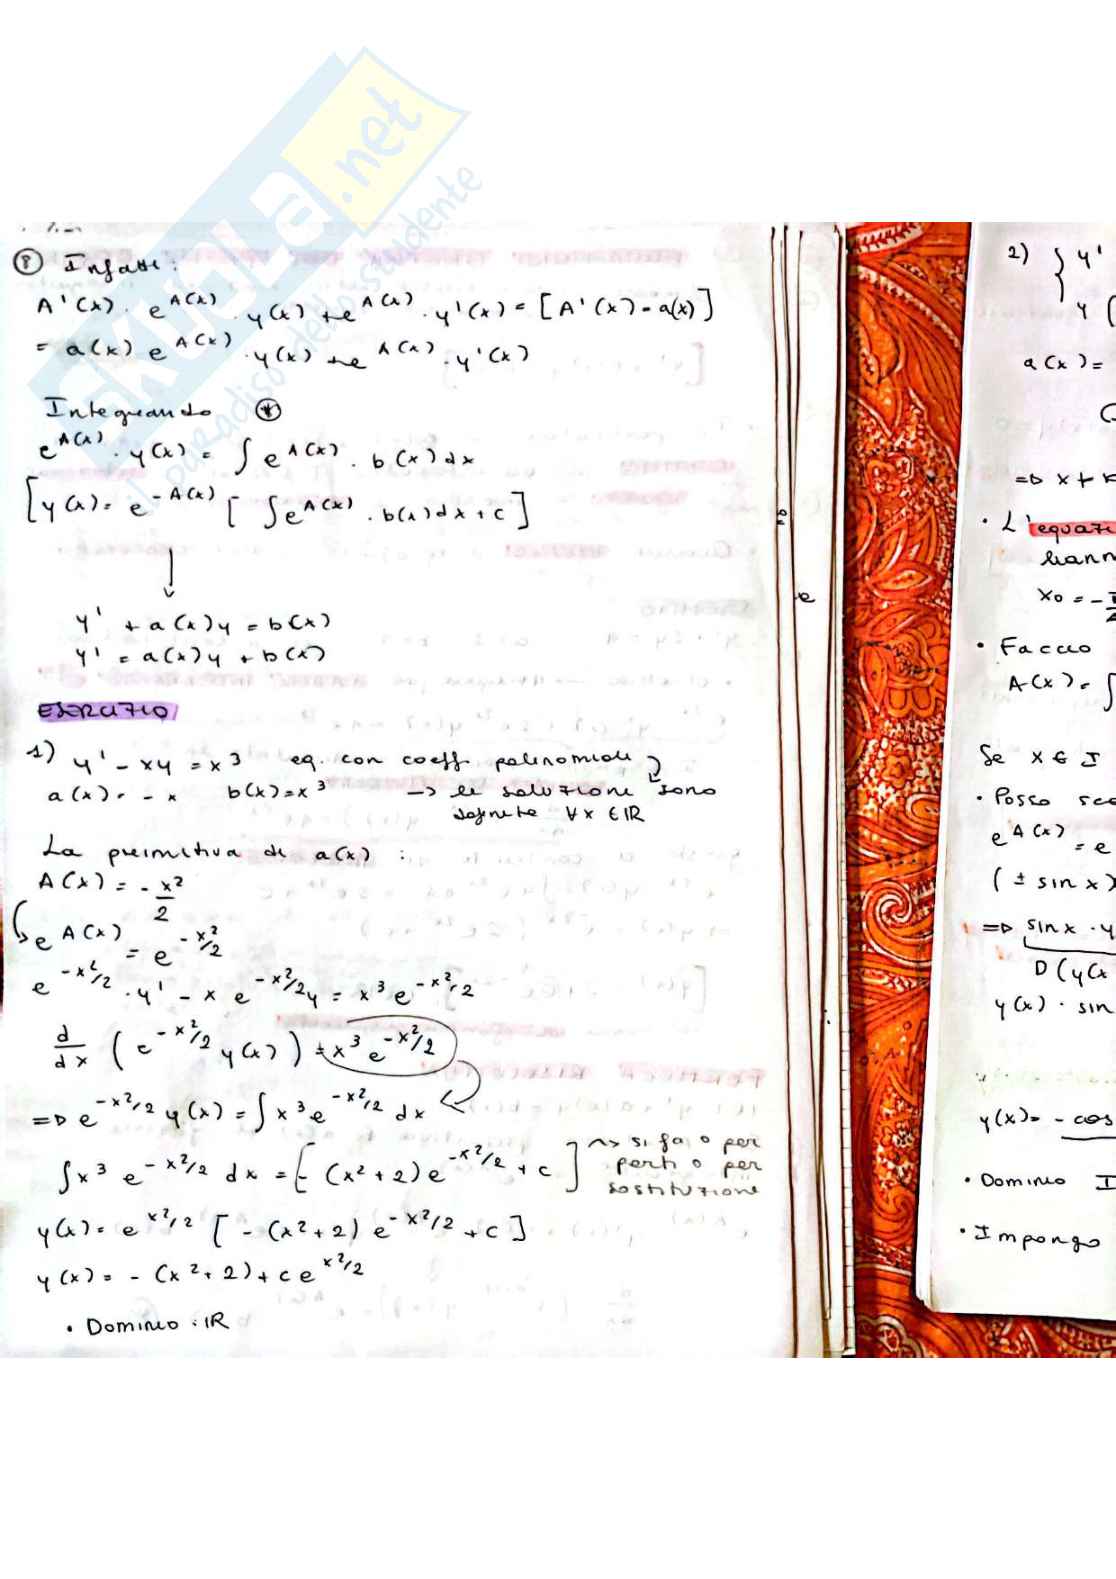 SKUOLA.net
il paradiso dello studente
Infatti:
A'(x) · e^A(x) · y(x) + e^A(x) · y'(x) = [A'(x) = a(x)]
= a(x) e^A(x) · y(x) + e^A(x) · y'(x)
Integrando ⊛
e^A(x) · y(x) = ∫ e^A(x) · b(x) dx
[y(x) = e^-A(x) [ ∫ e^A(x) · b(x) dx + c ]
↓
y' + a(x)y = b(x)
y' = a(x)y + b(x)
ESERCIZIO
1) y' - xy = x^3 eq. con coeff. polinomiali
a(x) = - x b(x) = x^3 -> le soluzione sono
definite ∀x ∈ IR
La primitiva di a(x) :
A(x) = - x^2/2
e^A(x) = e^-x^2/2
e^-x^2/2 · y' - x e^-x^2/2 y = x^3 e^-x^2/2
d/dx ( e^-x^2/2 y(x) ) = x^3 e^-x^2/2
=> e^-x^2/2 y(x) = ∫ x^3 e^-x^2/2 dx
∫ x^3 e^-x^2/2 dx = [- (x^2 + 2) e^-x^2/2 + c ] ~> si fa o per
parti o per
sostituzione
y(x) = e^x^2/2 [ - (x^2 + 2) e^-x^2/2 + c ]
y(x) = - (x^2 + 2) + c e^x^2/2
• Dominio : IR
2) { y'
y (
a(x) =
=> x + k
• L'equazi
hann
x0 = - π/2
• Faccio
A(x) = ∫
Se x ∈ I
• Posso sc
e^A(x) = e
( ± sin x )
=> sin x · y
D (y(x
y(x) · sin
y(x) = - cos
• Dominio I
• Impongo